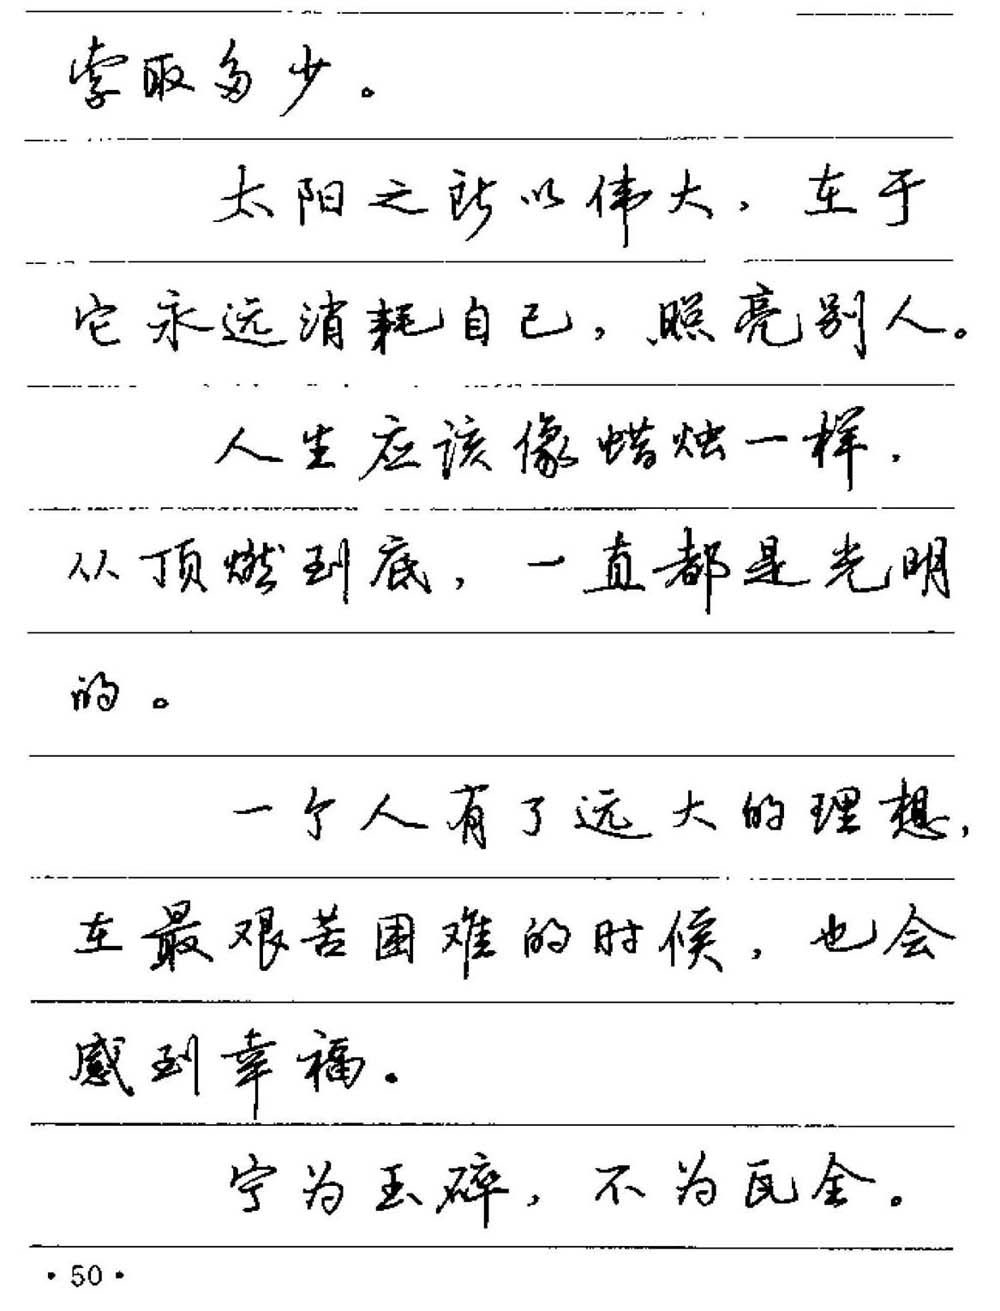 索取多少。
太阳之所以伟大，在于
它永远消耗自己，照亮别人。
人生应该像蜡烛一样，
从顶燃到底，一直都是光明
的。
一个人有了远大的理想，
在最艰苦困难的时候，也会
感到幸福。
宁为玉碎，不为瓦全。
·50·